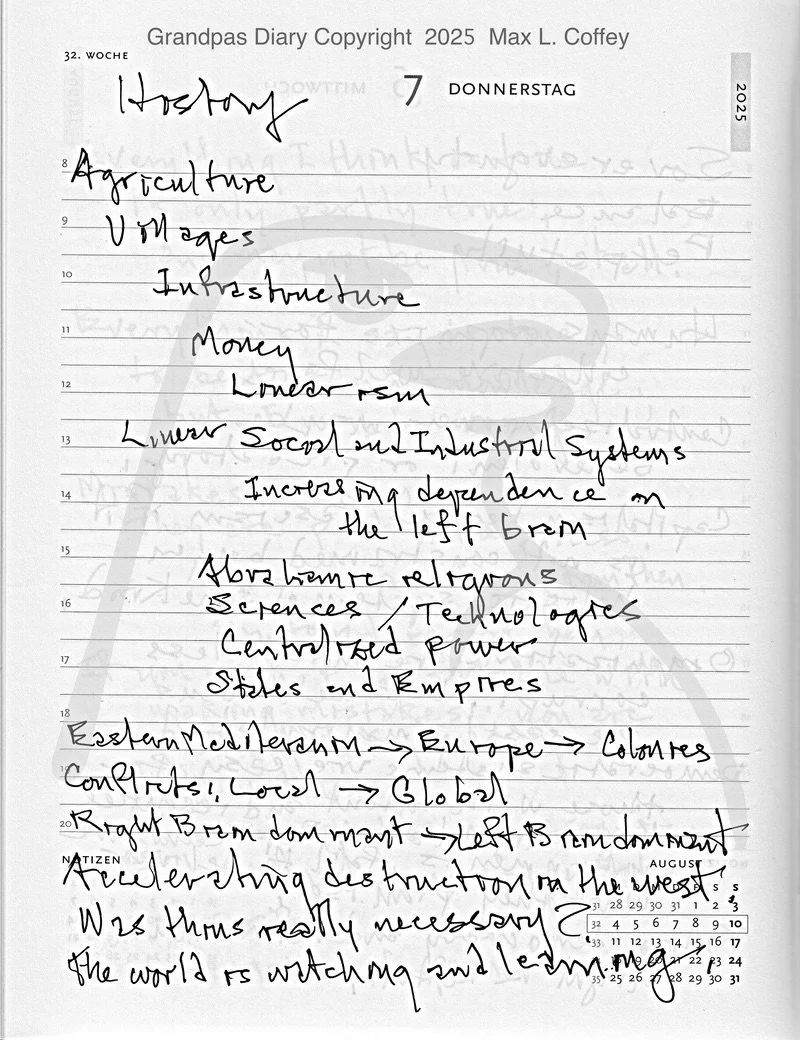 Grandpas Diary Copyright 2025 Max L. Coffey
32. WOCHE
7 DONNERSTAG
2025
History
8 Agriculture
9 Villages
10 Infrastructure
11 Money
12 Linearism
13 Linear Social and Industrial Systems
14 Increasing dependence on
the left brain
15 Abrahamic religions
16 Sciences / Technologies
Centralized power
17 States and Empires
18 Eastern Mediteranin → Europe → Colonies
19 Conflicts: Local → Global
20 Right Brain dominant → Left Brain dominant
NOTIZEN
AUGUST
Accelerating destruction in the west
S S
31 28 29 30 31 1 2 3
Was this really necessary?
32 4 5 6 7 8 9 10
33 11 12 13 14 15 16 17
the world is watching and learning.
21 22 23 24
35 25 26 27 28 29 30 31